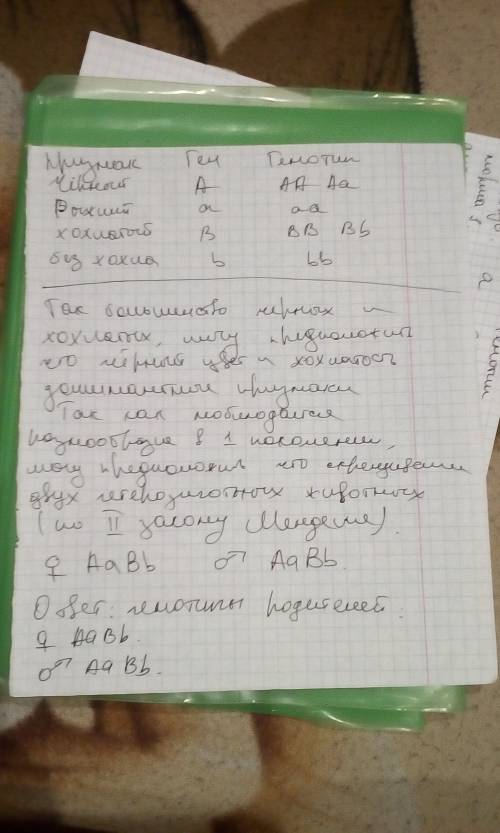 Признак Ген Генотип
Чёрный А АА Аа
Рыжий а аа
хохлатый В ВВ Вb
без хохла b bb
Так большинство черных и
хохлатых, могу предположить
что чёрный цвет и хохлатость
доминантные признаки
Так как наблюдается
разнообразие в 1 поколении,
могу предположить что скрещивали
двух гетерозиготных животных
(по II закону Менделя).
♀ АаВb ♂ АаВb.
Ответ: генотипы родителей:
♀ АаВb.
♂ АаВb.